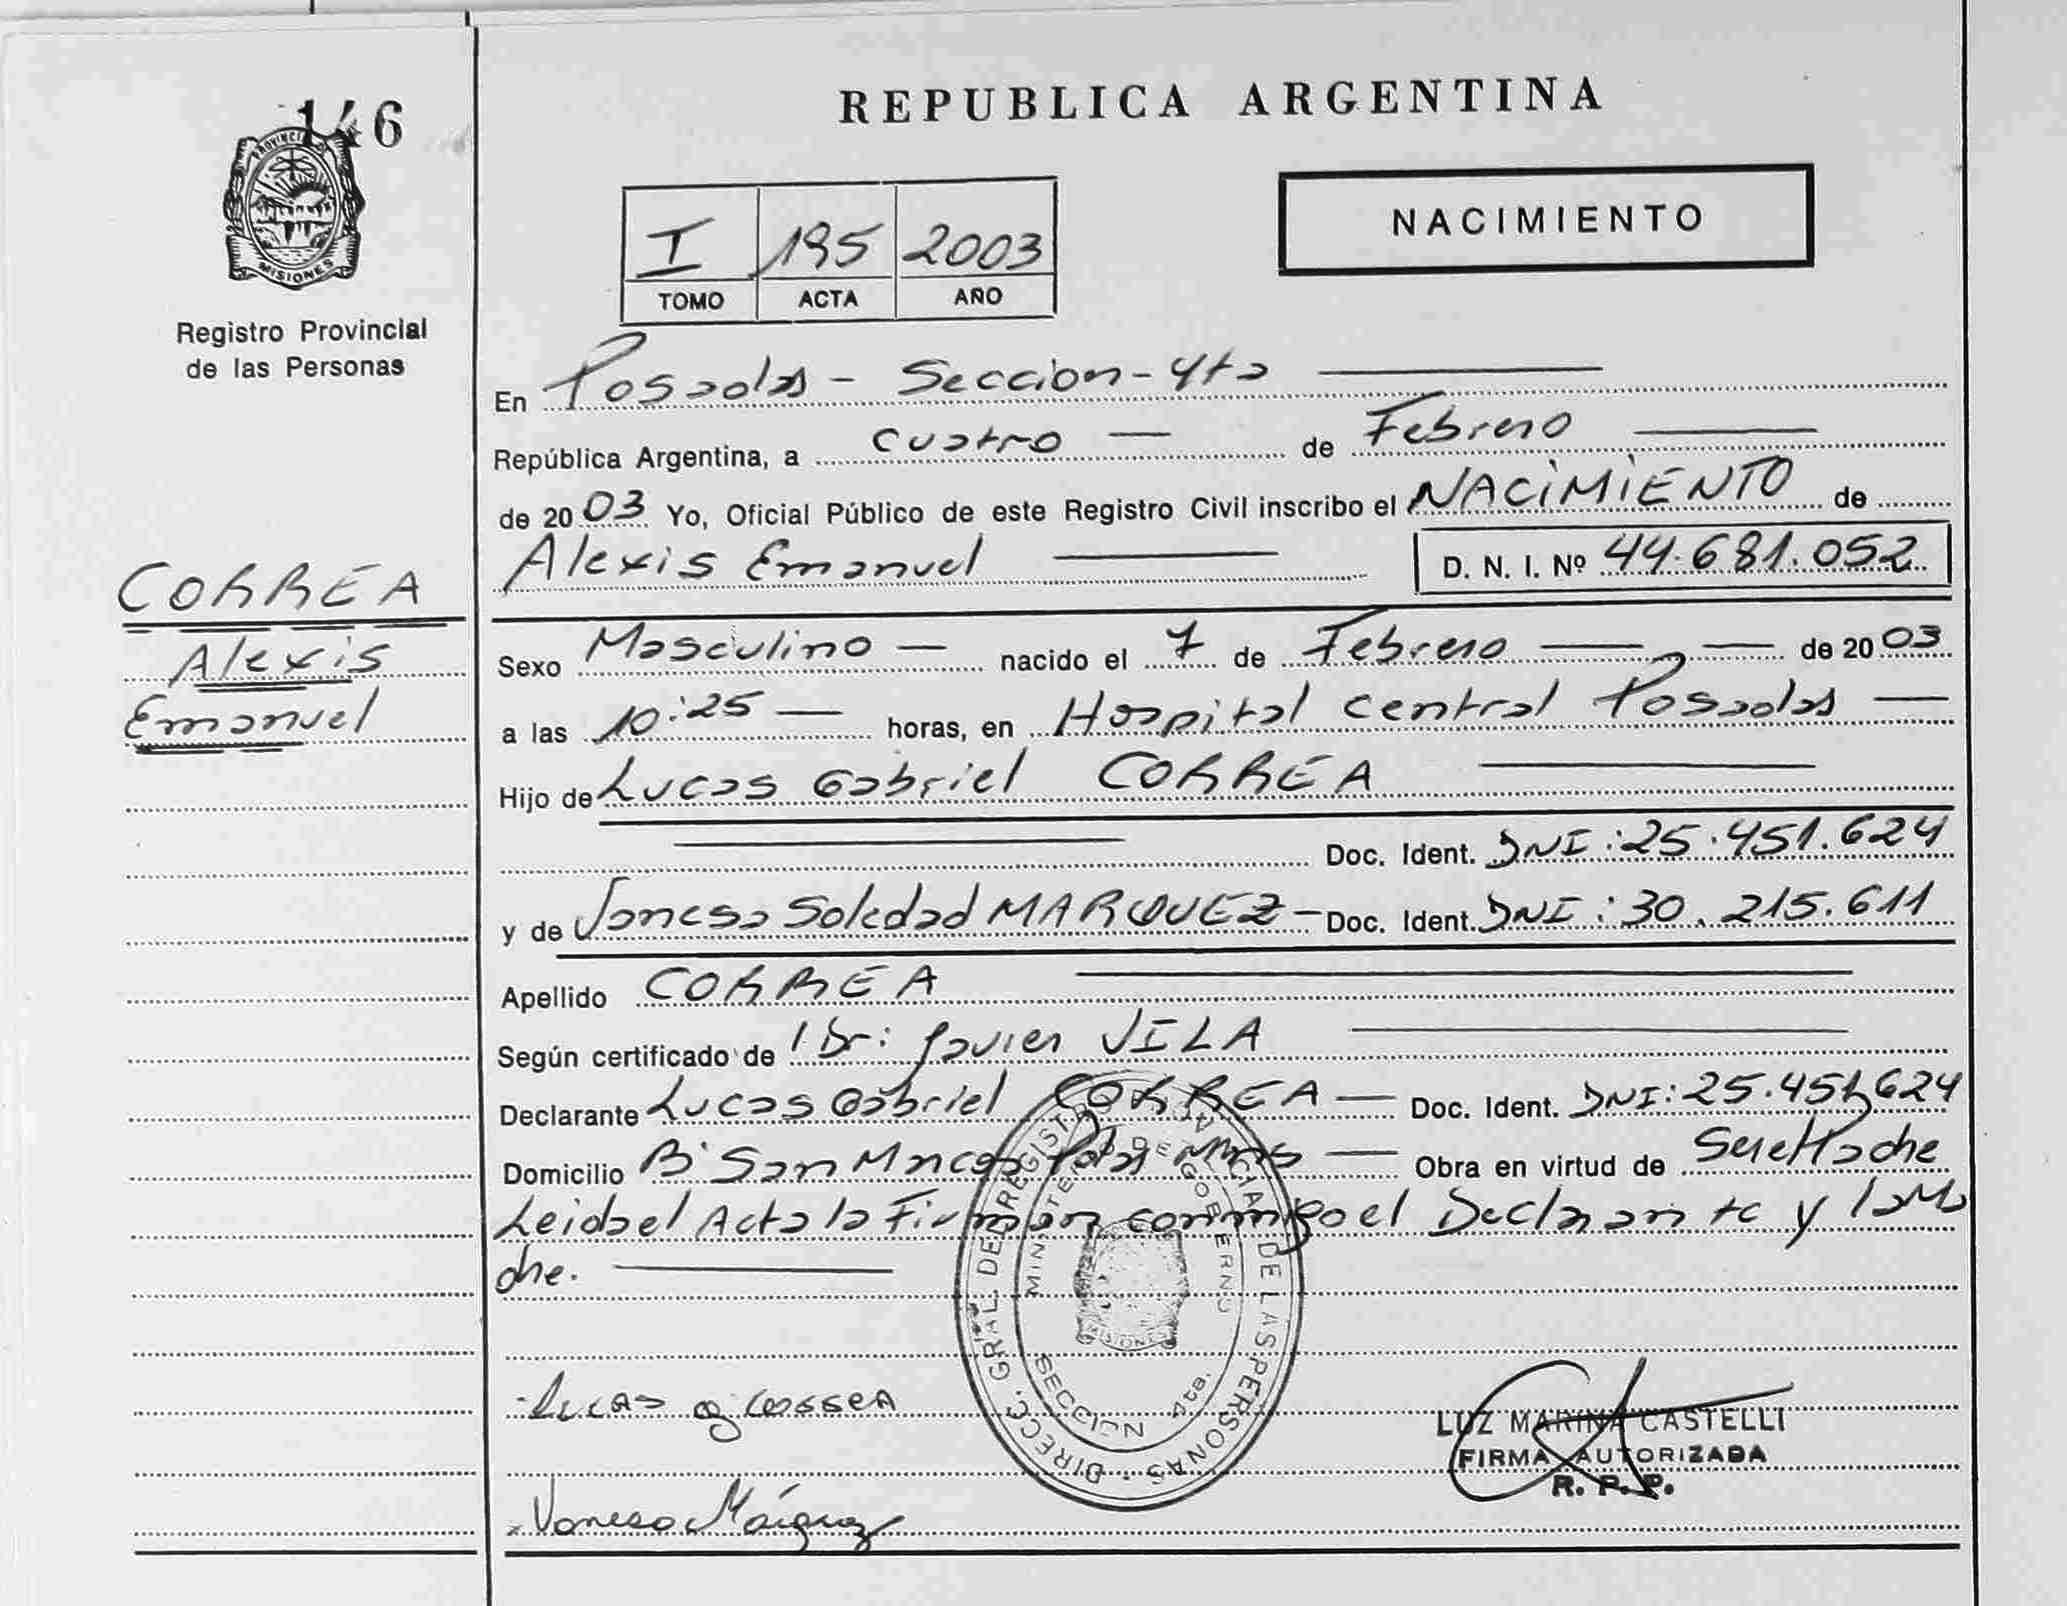 146
PROVINCIA
MISIONES
Registro Provincial
de las Personas
CORREA
Alexis
Emanuel
REPUBLICA ARGENTINA
NACIMIENTO
I 195 2003
TOMO ACTA AÑO
En Posadas - Seccion - 4ta
República Argentina, a cuatro de Febrero
de 2003 Yo, Oficial Público de este Registro Civil inscribo el NACIMIENTO de
Alexis Emanuel D. N. I. Nº 44.681.052
Sexo Masculino nacido el de Febrero de 2003
a las 10:25 horas, en Hospital Central Posadas
Hijo de Lucas Gabriel CORREA
Doc. Ident. DNI: 25.451.624
y de Vanesa Soledad MARQUEZ - Doc. Ident. DNI: 30.215.611
Apellido CORREA
Según certificado de Dr: Javier VILA
Declarante Lucas Gabriel CORREA - Doc. Ident. DNI: 25.451.624
Domicilio B° San Marcos Pdas Mnes - Obra en virtud de
Leida el Acta la Firman conmigo el Declarante y la Ma
dre.
DIRECC. GRAL. DE REGISTRO PROVINCIAL DE LAS PERSONAS
MINISTERIO DE GOBIERNO
MISIONES
SECCION 4ta.
Lucas g Correa
LUZ MARINA CASTELLI
FIRMA AUTORIZADA
R. P. P.
Vanesa Márquez